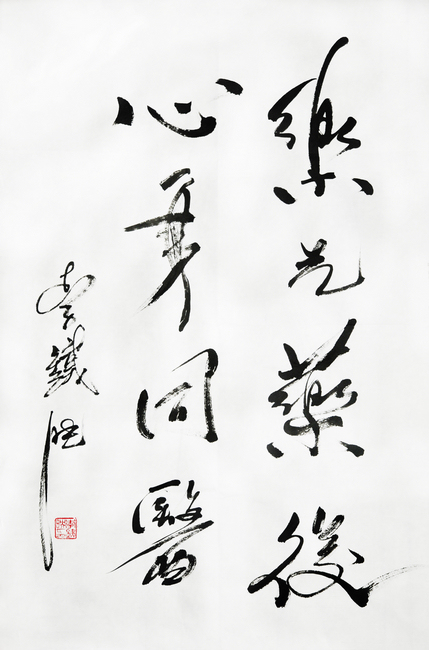 樂先藥後
心身同醫
李鐵映